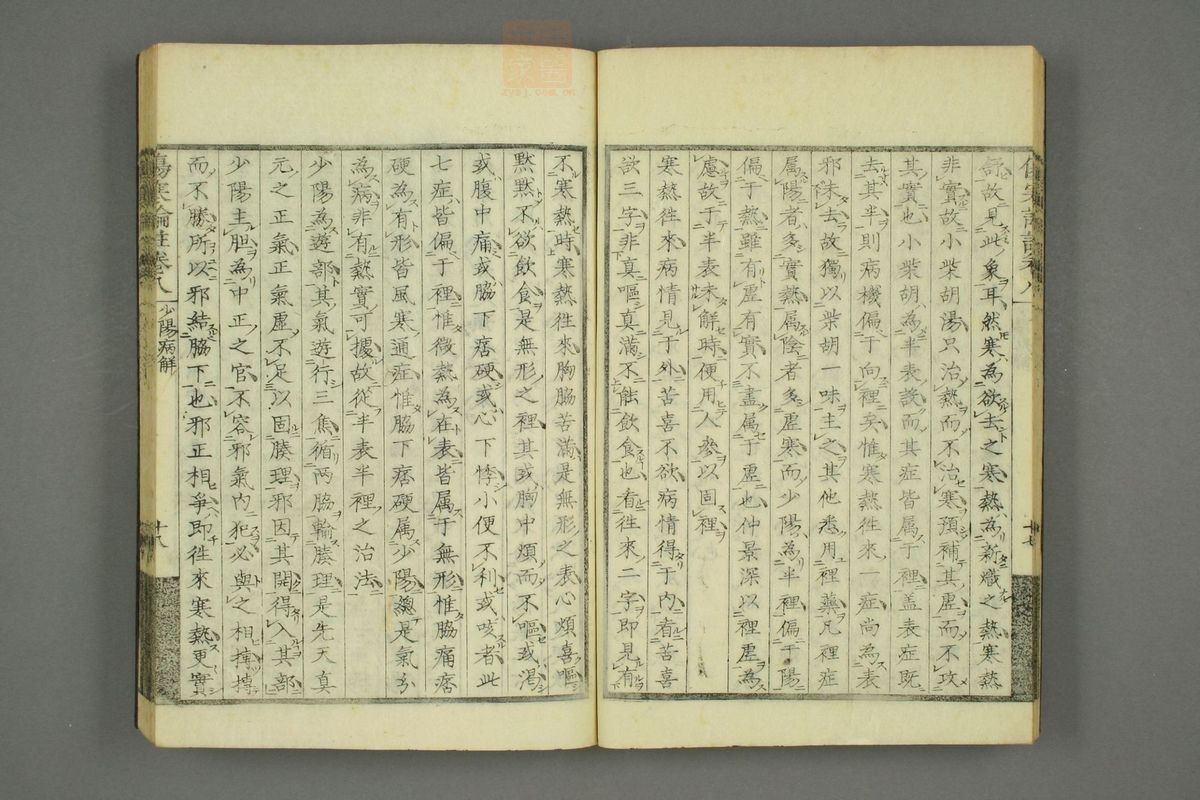 舒故見此象耳然寒為欲去之寒熱為新熾之熱寒熱
非實故小柴胡湯只治熱而不治寒預補其虛而不攻
其實也小柴胡為半表設而其症皆属于裡盖表症既
去其半則病機偏于向裡矣惟寒熱徃来一症尚為表
邪未去故獨以柴胡一味主之其他悉用裡藥凡裡症
属陽者多實熱属陰者多虛寒而少陽為半裡偏于陽
偏于熱雖有虛有實不盡属于虛也仲景深以裡虛為
慮故于半表未解時便用人參以固裡
寒熱徃來病情見于外苦喜不欲病情得于内者苦喜
欲三字非真嘔真滿不能飲食也看徃來二字即見有
不寒熱時寒熱徃來胸脇苦滿是無形之表心煩喜嘔
默默不欲飲食是無形之裡其或胸中煩而不嘔或渴
或腹中痛或脇下痞硬或心下悸小便不利或咳者此
七症皆偏于裡惟微熱為在表皆属于無形惟脇痛痞
硬為有形皆風寒通症惟脇下痞硬属少陽總是氣分
為病非有熱實可據故從半表半裡之治法
少陽為遊部其氣遊行三焦循兩脇輸腠理是先天真
元之正氣正氣虛不足以固腠理邪因其開得入其部
少陽主胆為中正之官不容邪氣内犯必與之相搏搏
而不勝所以邪結脇下也邪正相爭即徃來寒熱更實
傷寒論註卷八 少陽病解 十八